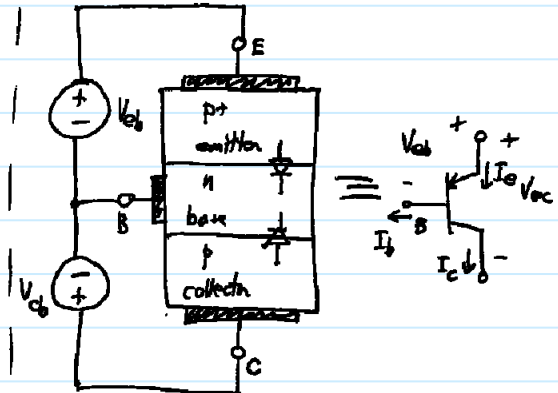 E
+
-
Veb
p+
emitter
n
base
B
p
collector
-
+
Vcb
C
≡
Veb
+
+
-
Ie
Vec
Ib
B
Ic
-